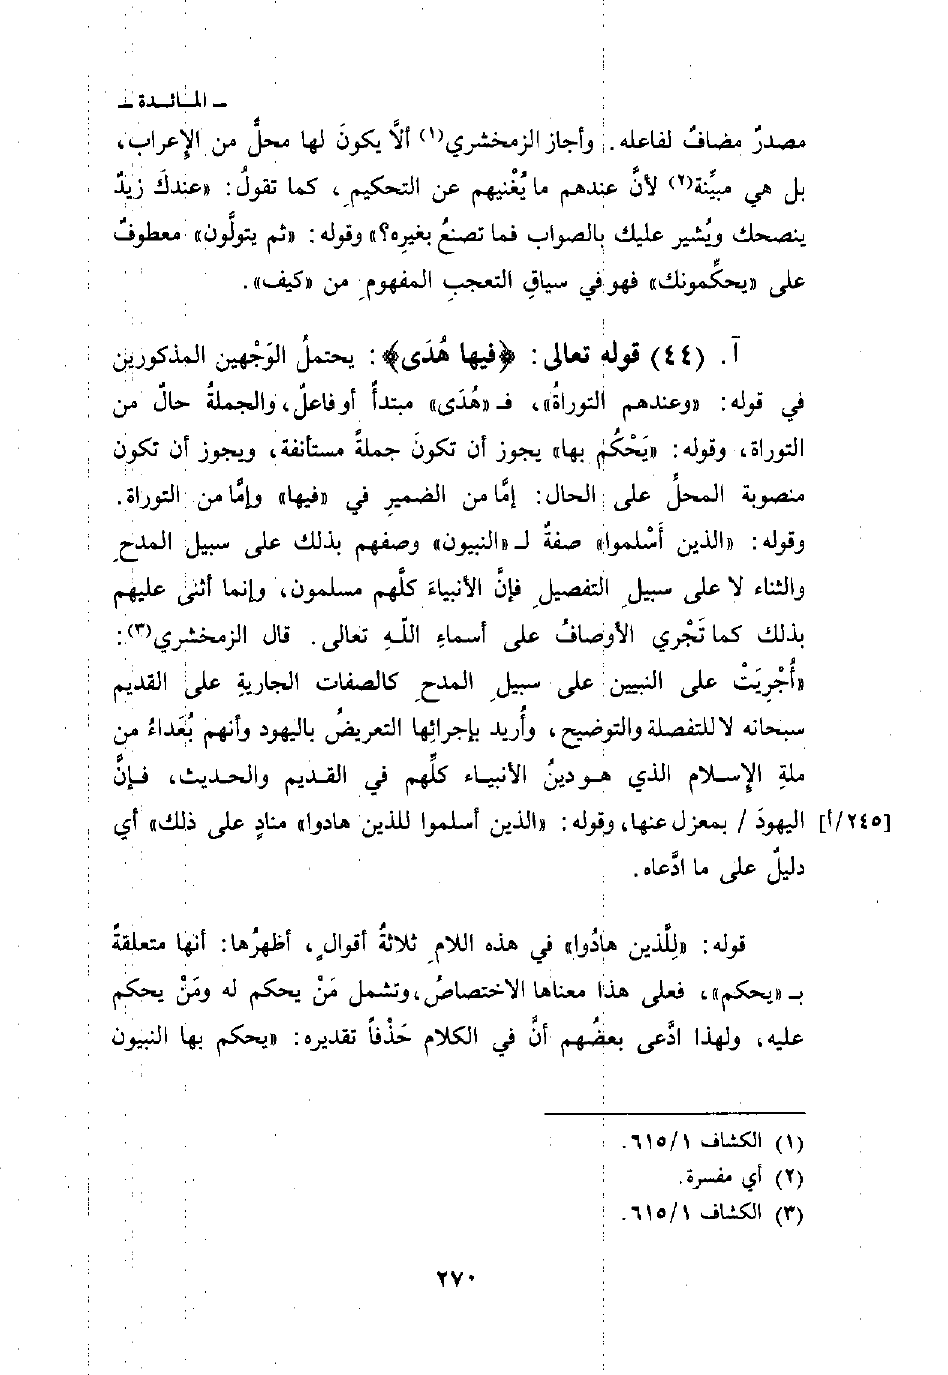 ـ المائدة ـ
مصدرٌ مضافٌ لفاعله. وأجاز الزمخشري(١) ألاَّ يكونَ لها محلٌّ من الإِعراب،
بل هي مبيِّنة(٢) لأنَّ عندهم ما يُغْنيهم عن التحكيمِ، كما تقولُ: «عندكَ زيدٌ
ينصحك ويُشير عليك بالصواب فما تصنعُ بغيرِه؟» وقوله: «ثم يتولَّون» معطوفٌ
على «يحكِّمونك» فهو في سياقِ التعجبِ المفهومِ من «كيف».
آ. (٤٤) قوله تعالى: ﴿فيها هُدَى﴾: يحتملُ الوَجْهين المذكورين
في قوله: «وعندهم التوراةُ»، فـ «هُدَى» مبتدأٌ أو فاعلٌ، والجملةُ حالٌ من
التوراة، وقوله: «يَحْكُم بها» يجوز أن تكونَ جملةً مستأنفة، ويجوز أن تكون
منصوبة المحلِّ على الحال: إمَّا من الضميرِ في «فيها» وإمَّا من التوراة.
وقوله: «الذين أَسْلموا» صفةٌ لـ «النبيون» وصفهم بذلك على سبيل المدحِ
والثناء لا على سبيلِ التفصيلِ فإنَّ الأنبياءَ كلَّهم مسلمون، وإنما أثنى عليهم
بذلك كما تَجْري الأوصافُ على أسماءِ اللَّهِ تعالى. قال الزمخشري(٣):
«أُجْرِيَتْ على النبيين على سبيلِ المدحِ كالصفات الجاريةِ على القديم
سبحانه لا للتفصلة والتوضيح، وأُريد بإجرائِها التعريضُ باليهود وأنهم بُعَداءُ من
ملةِ الإِسلام الذي هو دينُ الأنبياء كلِّهم في القديم والحديث، فإنَّ
[٢٤٥/أ] اليهودَ / بمعزل عنها، وقوله: «الذين أسلموا للذين هادوا» منادٍ على ذلك» أي
دليلٌ على ما ادَّعاه.
قوله: «لِلَّذين هادُوا» في هذه اللامِ ثلاثةُ أقوالٍ، أظهرُها: أنها متعلقةٌ
بـ «يحكم»، فعلى هذا معناها الاختصاصُ، وتشمل مَنْ يحكم له ومَنْ يحكم
عليه، ولهذا ادَّعى بعضُهم أنَّ في الكلام حَذْفاً تقديره: «يحكم بها النبيون
(١) الكشاف ٦١٥/١.
(٢) أي مفسرة.
(٣) الكشاف ٦١٥/١.
٢٧٠